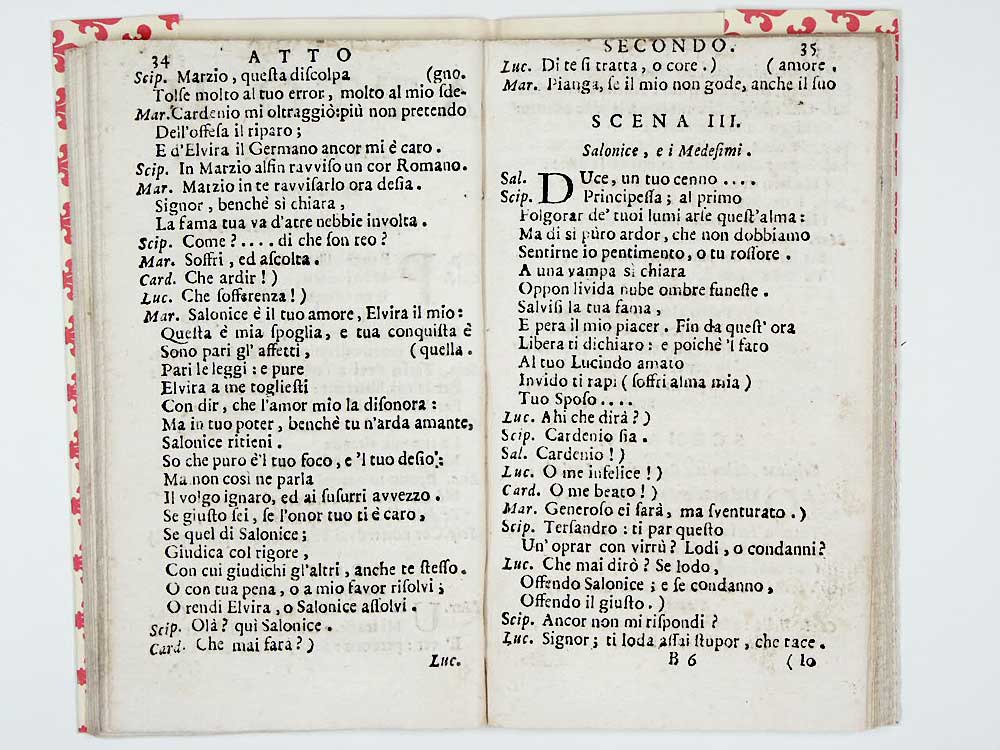 34 ATTO
Scip. Marzio, queſta diſcolpa (gno.
Tolſe molto al tuo error, molto al mio ſde-
Mar. Cardenio mi oltraggiò: più non pretendo
Dell'offeſa il riparo;
E d'Elvira il Germano ancor mi è caro.
Scip. In Marzio alfin ravviſo un cor Romano.
Mar. Marzio in te ravviſarlo ora deſia.
Signor, benchè sì chiara,
La fama tua va d'atre nebbie involta.
Scip. Come?.... di che ſon reo?
Mar. Soffri, ed aſcolta.
Card. Che ardir!)
Luc. Che ſofferenza!)
Mar. Salonice è il tuo amore, Elvira il mio:
Queſta è mia ſpoglia, e tua conquiſta è
Sono pari gl' affetti, (quella.
Pari le leggi: e pure
Elvira a me toglieſti
Con dir, che l'amor mio la diſonora:
Ma in tuo poter, benchè tu n'arda amante,
Salonice ritieni.
So che puro è'l tuo foco, e 'l tuo deſio:
Ma non così ne parla
Il volgo ignaro, ed ai ſuſurri avvezzo.
Se giuſto ſei, ſe l'onor tuo ti è caro,
Se quel di Salonice;
Giudica col rigore,
Con cui giudichi gl'altri, anche te ſteſſo.
O con tua pena, o a mio favor riſolvi;
O rendi Elvira, o Salonice aſſolvi.
Scip. Olà? qui Salonice.
Card. Che mai farà?)
Luc.
SECONDO. 35
Luc. Di te ſi tratta, o core.) (amore.
Mar. Pianga, ſe il mio non gode, anche il ſuo
SCENA III.
Salonice, e i Medeſimi.
Sal. DUce, un tuo cenno ....
Scip. Principeſſa; al primo
Folgorar de' tuoi lumi arſe queſt'alma:
Ma di si pùro ardor, che non dobbiamo
Sentirne io pentimento, o tu roſſore.
A una vampa sì chiara
Oppon livida nube ombre funeſte.
Salviſi la tua fama,
E pera il mio piacer. Fin da queſt' ora
Libera ti dichiaro: e poichè 'l fato
Al tuo Lucindo amato
Invido ti rapì (soffri alma mia)
Tuo Spoſo....
Luc. Ahi che dirà?)
Scip. Cardenio ſia.
Sal. Cardenio!)
Luc. O me infelice!)
Card. O me beato!)
Mar. Generoſo ei ſarà, ma ſventurato.)
Scip. Terſandro: ti par queſto
Un' oprar con virrù? Lodi, o condanni?
Luc. Che mai dirò? Se lodo,
Offendo Salonice; e ſe condanno,
Offendo il giuſto.)
Scip. Ancor non mi riſpondi?
Luc. Signor; ti loda aſſai ſtupor, che tace.
B 6 (Io